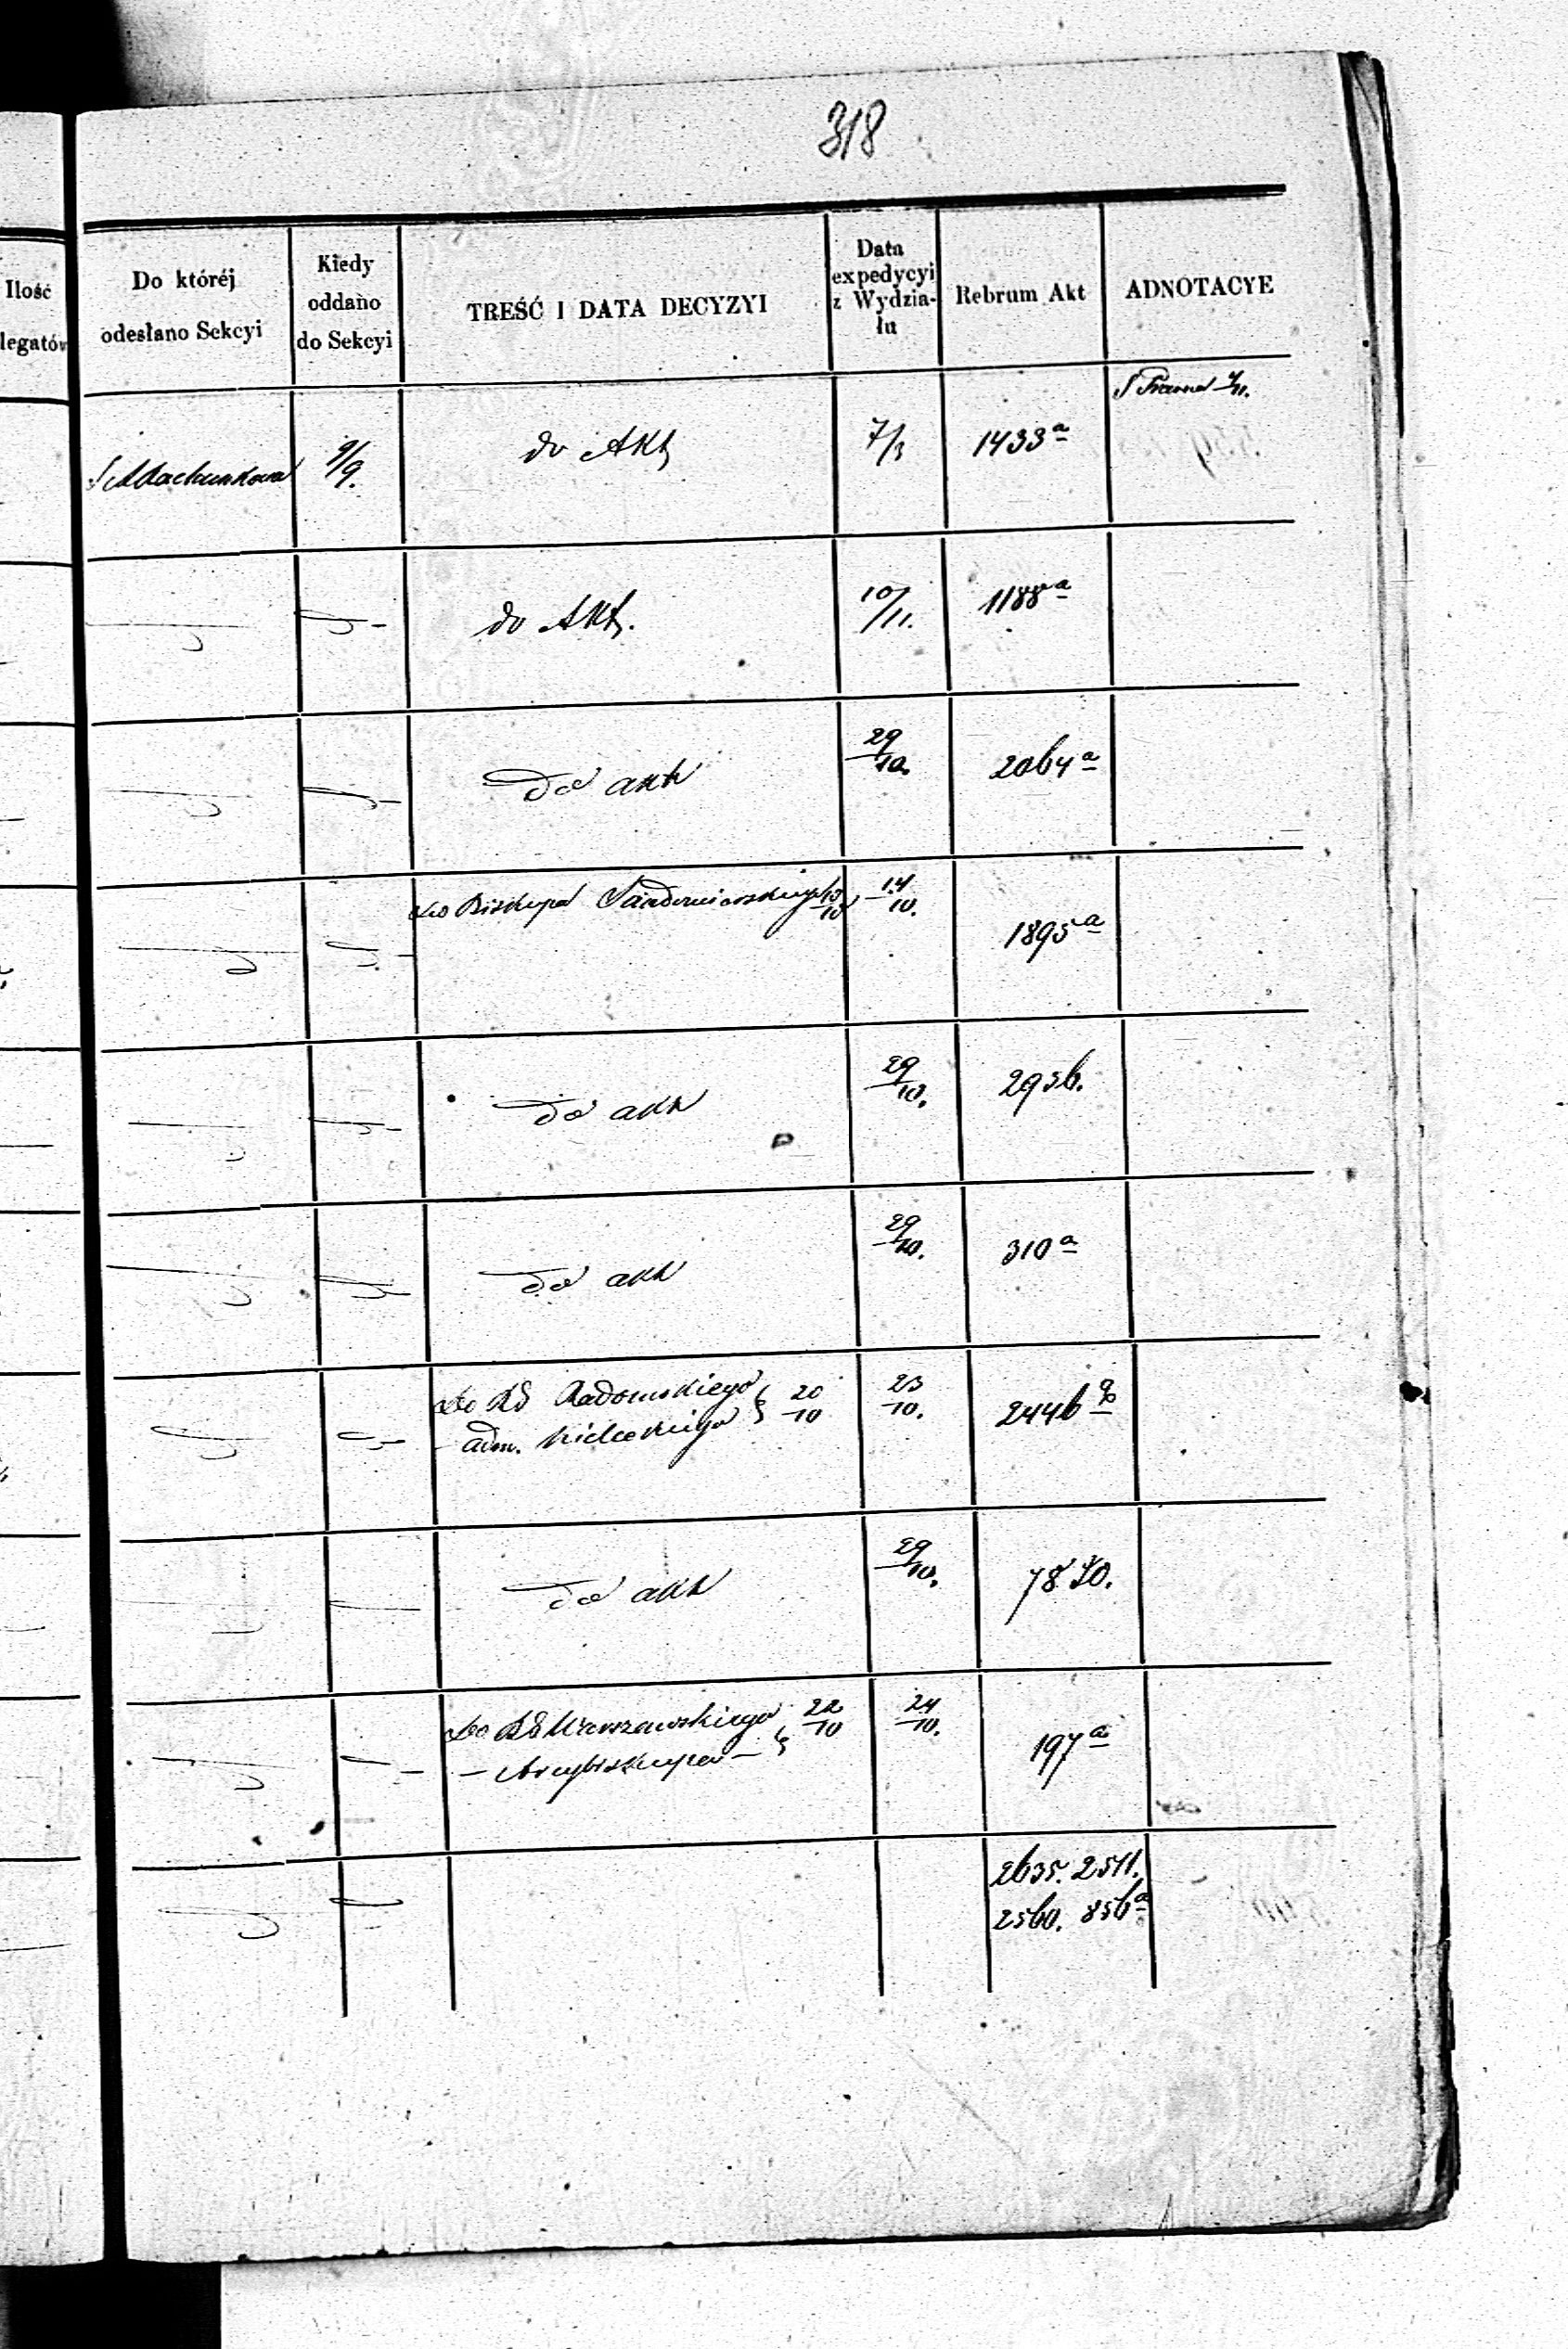 318
Ilość
legatów
Do któréj
odesłano Sekcyi
Kiedy
oddano
do Sekcyi
TREŚĆ I DATA DECYZYI
Data
expedycyi
z Wydzia-
łu
Rebrum Akt
ADNOTACYE
Rachunkowa 9/9. do Akt 7/3 1433 a
do Akt. 10/11. 1188 a
do akt 29/10. 2064 a
do Biskupa Sandomierskiego 13/10 14/10. 1895 a
do akt 29/10. 295b.
do akt 29/10. 310 a
do RG Radomskiego } 20/10 23/10. 2446
- adm. Kieleckiego
do akt 29/10.
do RG Warszawskiego } 22/10 24/10. 197 a
- Arcybiskupa -
2635. 2511.
2560. 856 a